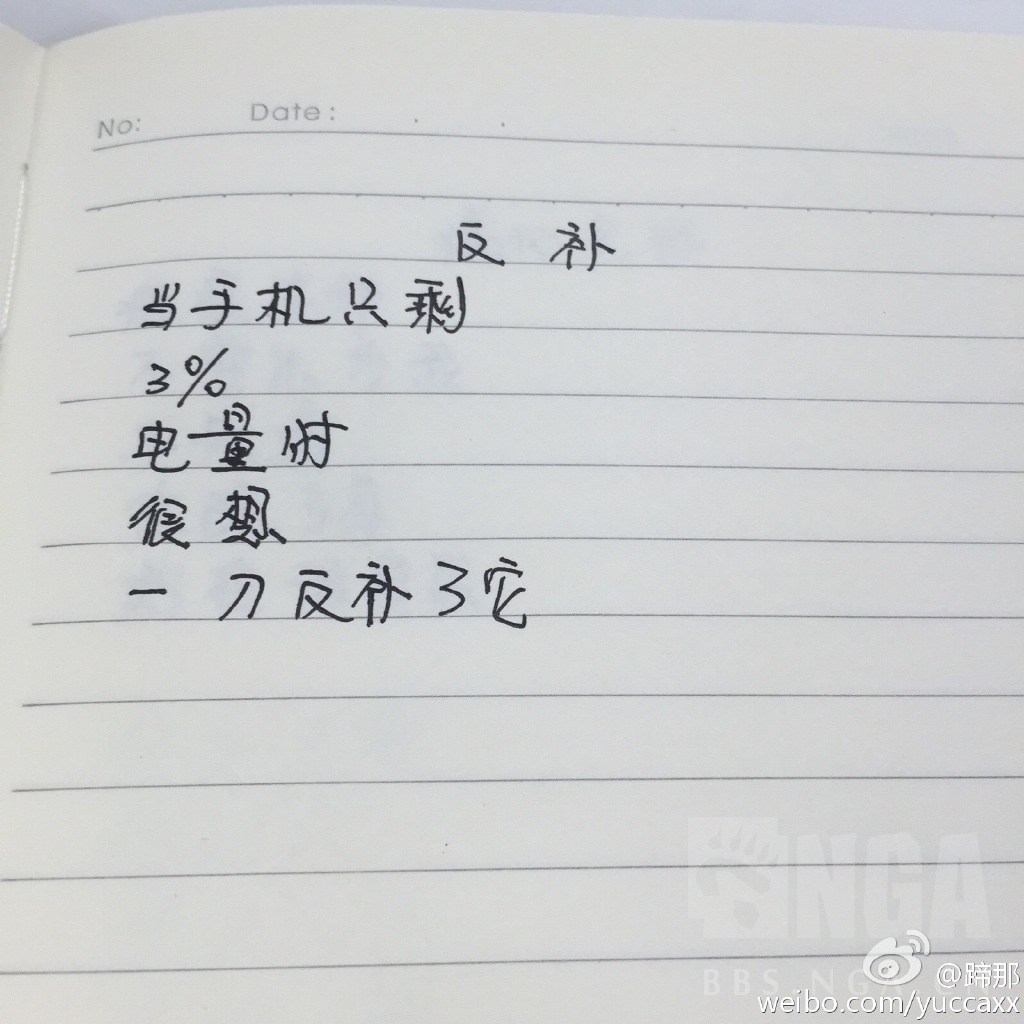 No: Date:
反补
当手机只剩
3%
电量时
很想
一刀反补了它
NGA
BBS.NGA.CN
@蹄那
weibo.com/yuccaxx